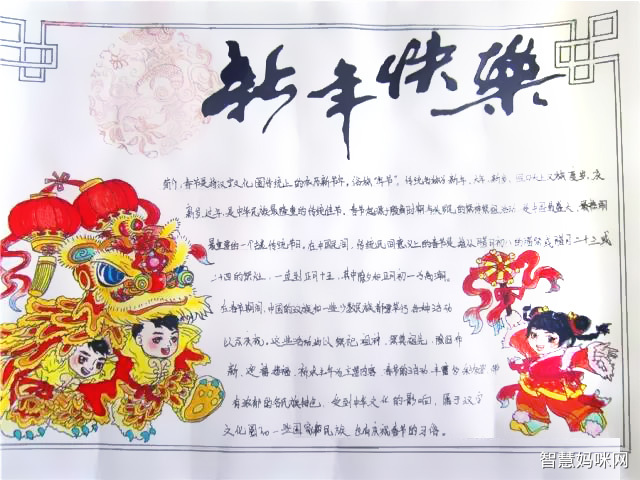 新年快樂
春节是指汉字文化圈传统上的农历新年,俗称"年节",传统名称为新年、大年、新岁,但口头上又称度岁、庆
新岁、过年,是中华民族最隆重的传统佳节。春节起源于殷商时期年头岁尾的祭神祭祖活动
最重要的一个古老传统节日。在中国民间,传统民间意义上的春节是指从腊月初八的腊祭或腊月二十三或
二十四的祭灶,一直到正月十五,其中除夕和正月初一为高潮。
在春节期间,中国的汉族和一些少数民族都要举行各种活动
以示庆祝。这些活动均以祭祀祖神、祭奠祖先、除旧布
新、迎禧接福、祈求丰年为主要内容,春节的活动丰富多彩,带
有浓郁的各民族特色。受到中华文化的影响,属于汉字
文化圈的一些国家和民族也有庆祝春节的习俗。
智慧妈咪网